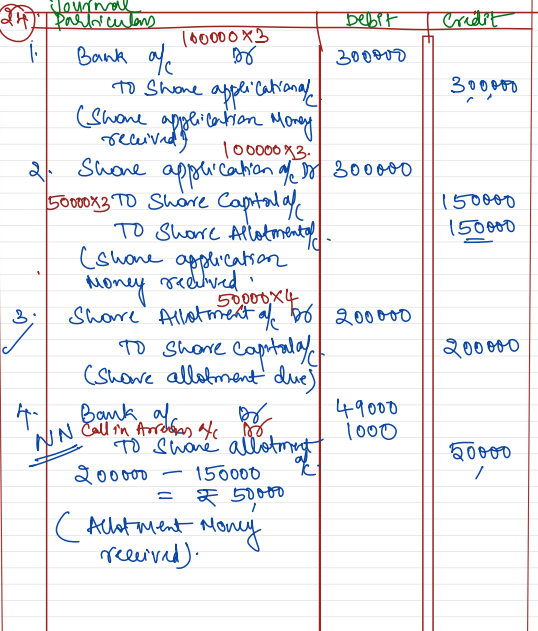 24
Journal
Particulars Debit Credit
100000×3
1. Bank a/c Dr 300000
To Share application a/c 300000
(Share application Money
received)
100000×3.
2. Share application a/c Dr 300000
50000×3 To Share Capital a/c 150000
To Share Allotment a/c. 150000
(Share application
Money received.
50000×4
3. Share Allotment a/c Dr 200000
To Share Capital a/c. 200000
(Share allotment due)
4. Bank a/c Dr 49000
NN Call in Arrears a/c Dr 1000
To Share allotment a/c. 50000
200000 – 150000
= ₹ 50,000
(Allotment Money
received).